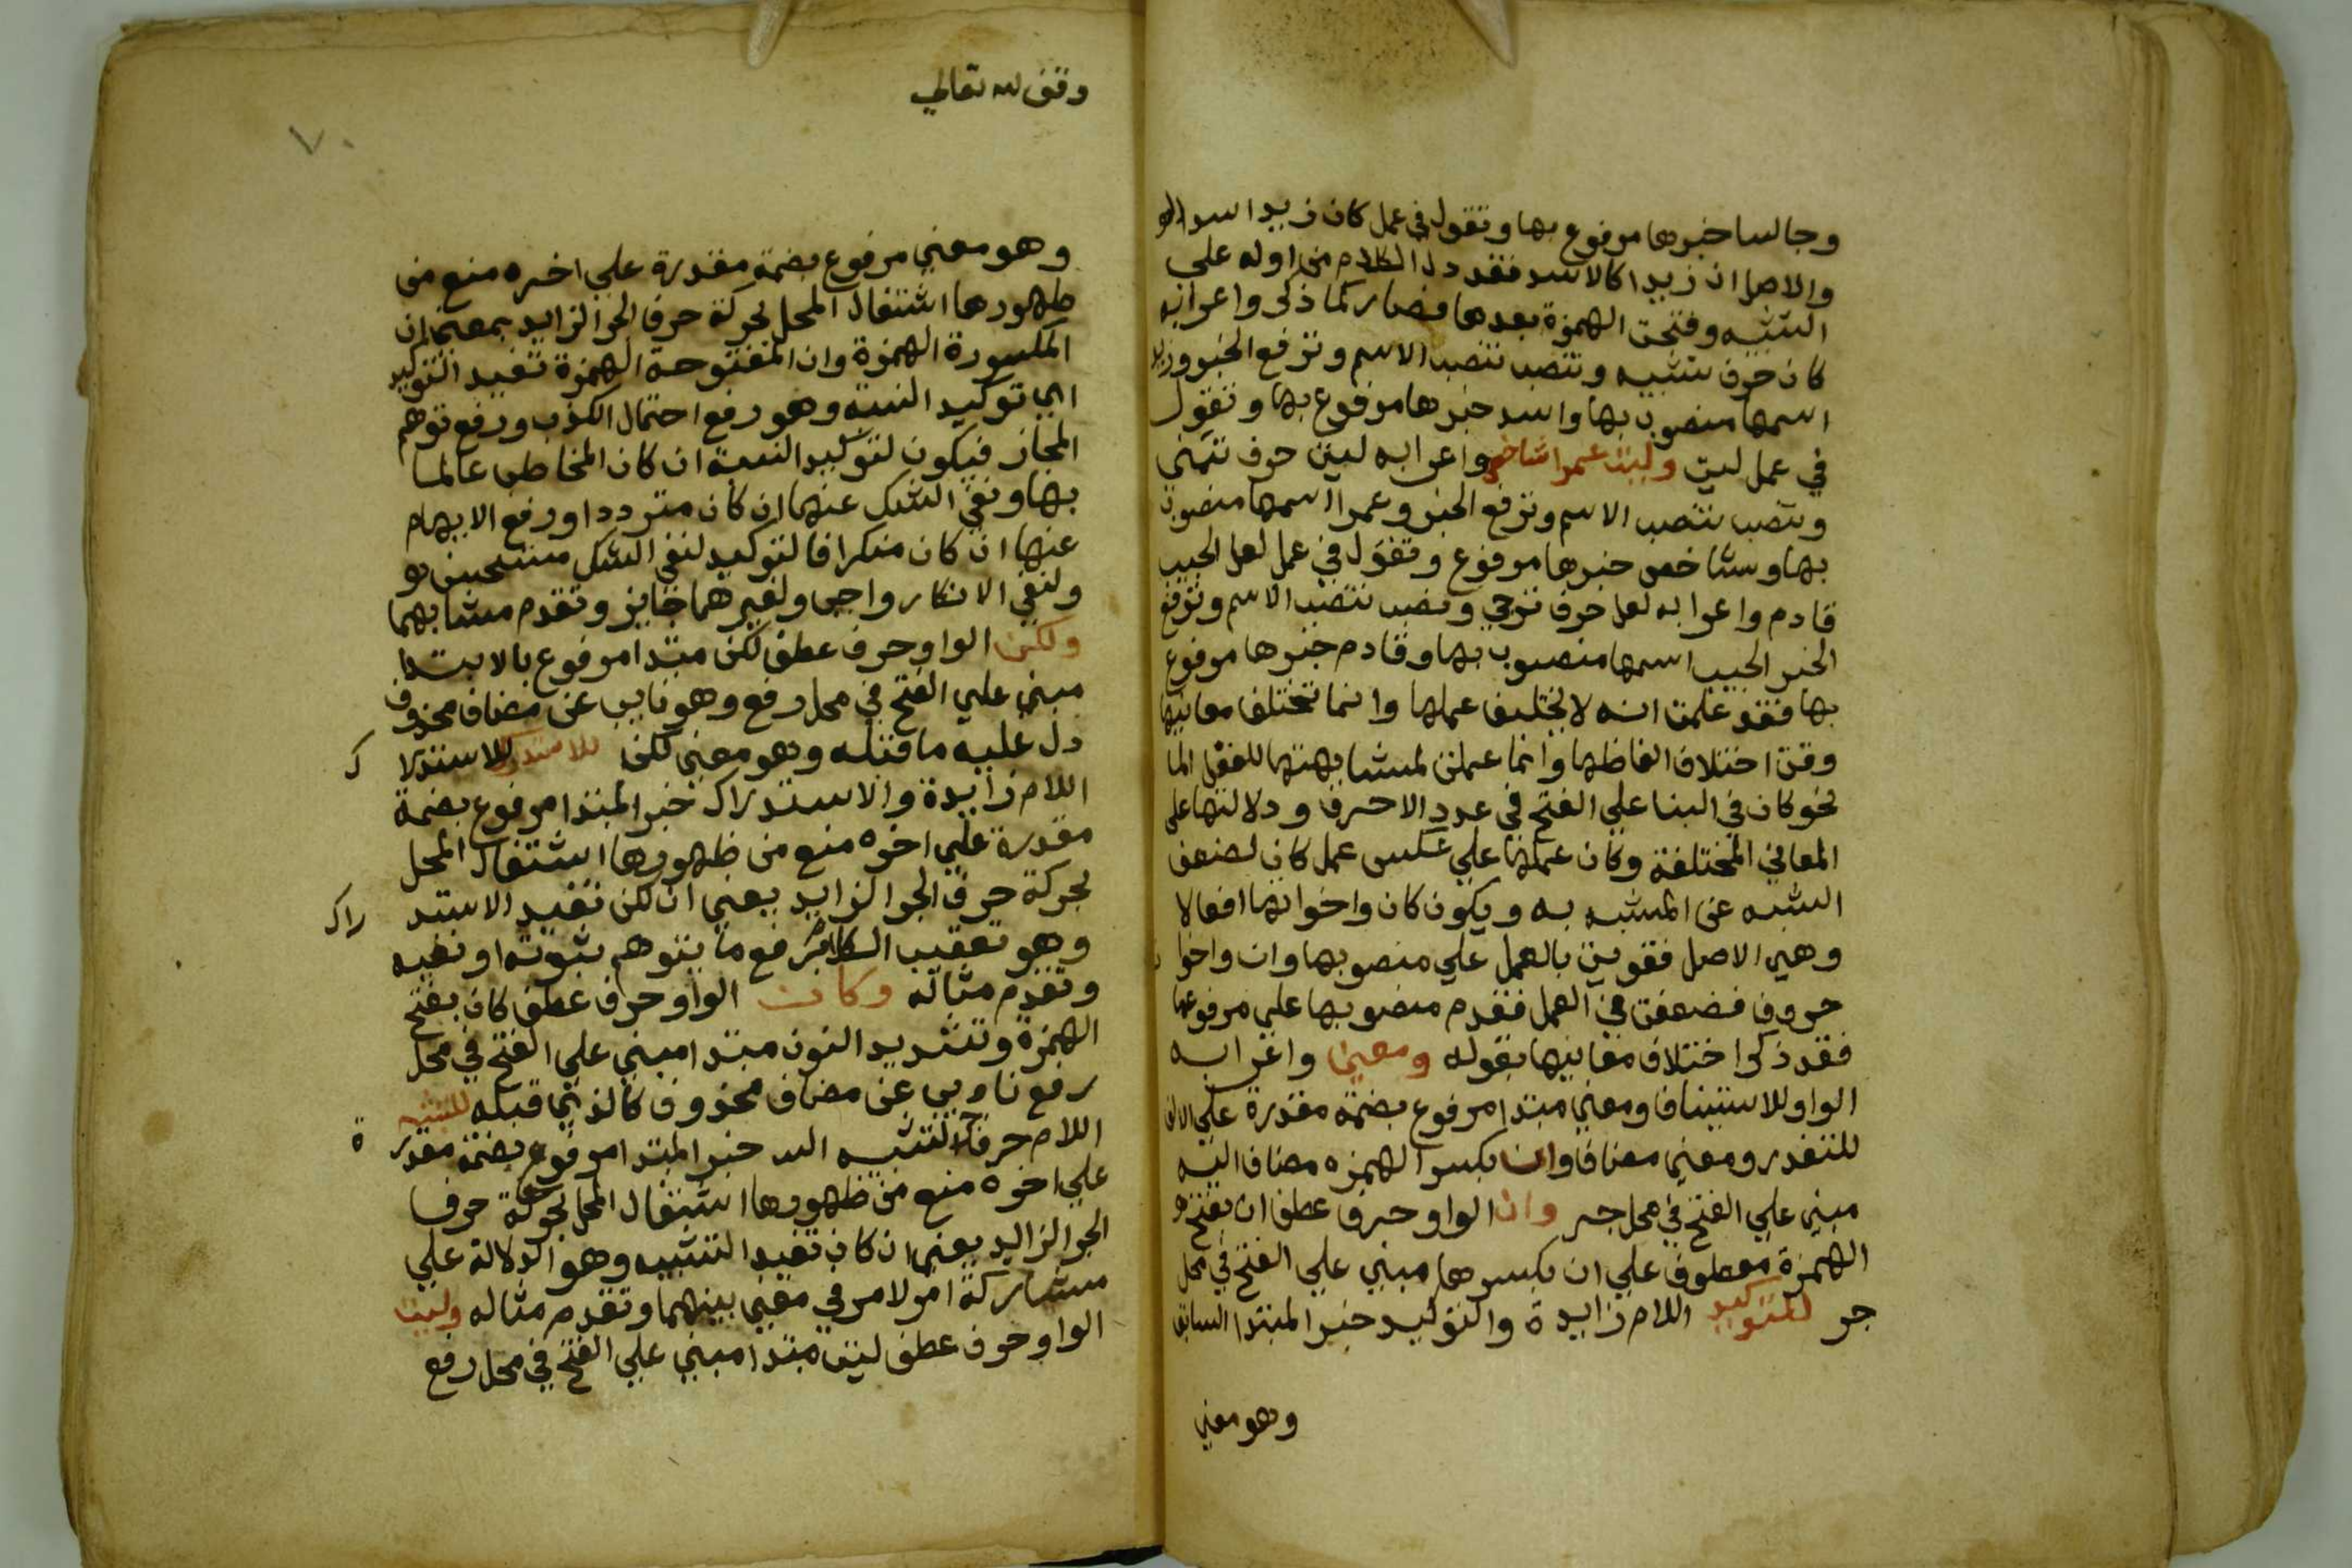 وجالسا خبرها مرفوع بها وتقول في عمل كان زيدا اسد الو
والاصل ان زيدا كالاسد فقدم الكلام من اوله علي
التشبه وفتحت الهمزة بعدها فصار كما ذكر واعرابه
كان حرف تشبيه ونصب تنصب الاسم وترفع الخبر وزيد
اسمها منصوب بها واسد خبرها مرفوع بها وتقول
في عمل ليت وليت عمرا شاخص واعرابه ليت حرف تمني
ونصب تنصب الاسم وترفع الخبر وعمرا اسمها منصوب
بها وشاخص خبرها مرفوع وتقول في عمل لعل الحبيب
قادم واعرابه لعل حرف ترجي ونصب تنصب الاسم وترفع
الخبر الحبيب اسمها منصوب بها وقادم خبرها مرفوع
بها فقد علمت انه لا يختلف عملها وانما تختلف معانيها
وقت اختلاف الفاظها وانما عملت لمشابهتها للفعل الما
نحو كان في البنا علي الفتح في عدد الاحرف ودلالتها على
المعاني المختلفة وكان عملها علي عكس عمل كان لضعف
الشبه عن المشبه به ويكون كان واخواتها افعالا
وهي الاصل فقويت بالعمل علي منصوبها وان واخوا
حروف فضعفت في العمل فقدم منصوبها علي مرفوعها
فقد ذكر اختلاف معانيها بقوله ومعني واعرابه
الواو للاستيناف ومعني مبتدا مرفوع بضمة مقدرة علي الالف
للتعذر ومعني مضاف وان بكسر الهمزه مضاف اليه
مبني علي الفتح في محل جر وان الواو حرف عطف ان بفتح
الهمزة معطوف علي ان بكسرها مبني علي الفتح في محل
جر للتوكيد اللام زايدة والتوكيد خبر المبتدا السابق
وهو معني
وقف لله تعالي
٧٠
وهو معني مرفوع بضمة مقدرة علي اخره منع من
ظهورها اشتغال المحل بحركة حرف الجر الزايد بمعني ان
المكسورة الهمزة وان المفتوحة الهمزة تفيد التوكيد
اي توكيد النسبة وهو رفع احتمال الكذب ورفع توهم
المجاز فيكون لتوكيد النسبة ان كان المخاطب عالما
بها ونفي الشك عنها ان كان مترددا ورفع الابهام
عنها ان كان منكرا فالتوكيد لنفي الشك مستحسن
ولنفي الانكار واجب ولغيرهما جايز وتقدم مشابهما
ولكن الواو حرف عطف لكن مبتدا مرفوع بالابتدا
مبني علي الفتح في محل رفع وهو نايب عن مضاف محذوف
دل عليه ما قبله وهو معني لكن للاستدراك للاستدرا ك
اللام زايدة والاستدراك خبر المبتدا مرفوع بضمة
مقدرة علي اخره منع من ظهورها اشتغال المحل
بحركة حرف الجر الزايد يعني ان لكن تفيد الاستد راك
وهو تعقيب الكلام برفع ما يتوهم ثبوته او نفيه
وتقدم مثاله وكان الواو حرف عطف كان بفتح
الهمزة وتشديد النون مبتدا مبني علي الفتح في محل
رفع نا ويب عن مضاف محذوف كالذي قبله للتشبيه
اللام حرف جر التشبيه خبر المبتدا مرفوع بضمة مقدر ة
علي اخره منع من ظهورها اشتغال المحل بحركة حرف
الجر الزايد يعني ان كان تفيد التشبيه وهو الدلالة علي
مشاركة امر لامر في معني بينهما وتقدم مثاله وليت
الواو حرف عطف ليت مبتدا مبني علي الفتح في محل رفع